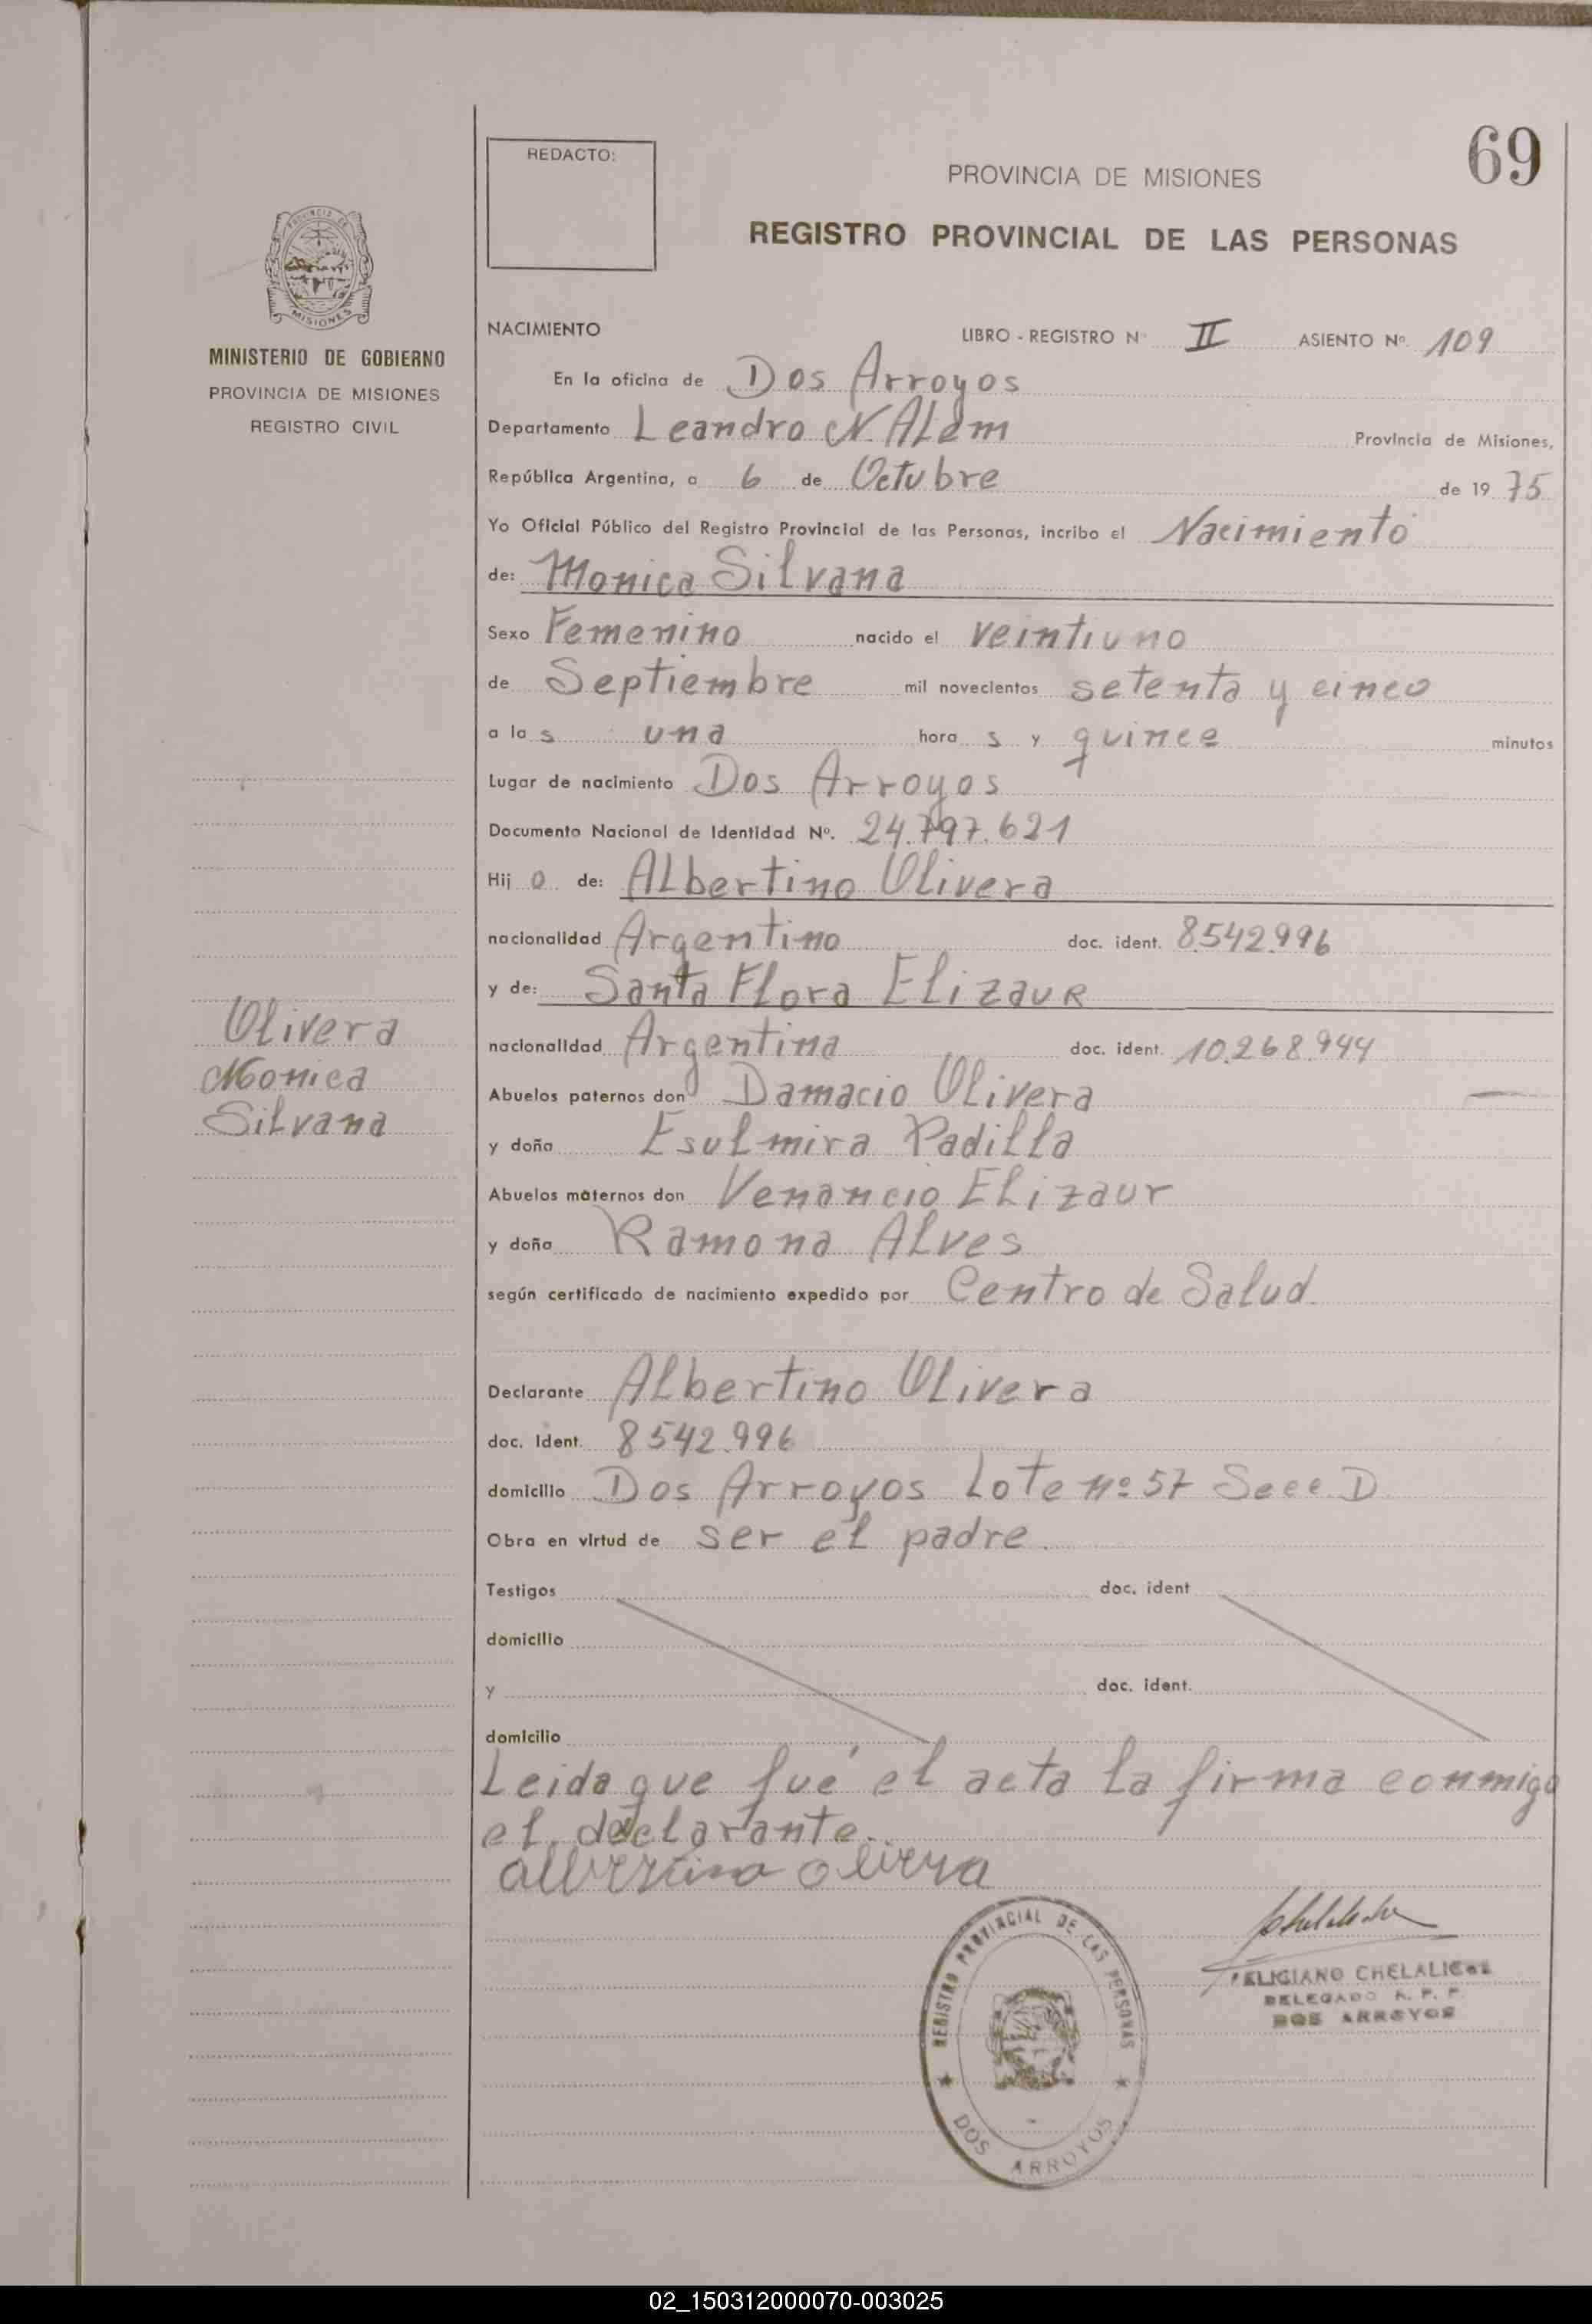 69
REDACTO:
PROVINCIA DE MISIONES
REGISTRO PROVINCIAL DE LAS PERSONAS
PROVINCIA DE
MISIONES
MINISTERIO DE GOBIERNO
PROVINCIA DE MISIONES
REGISTRO CIVIL
NACIMIENTO LIBRO - REGISTRO Nº II ASIENTO Nº. 109
En la oficina de Dos Arroyos
Departamento Leandro N. Alem Provincia de Misiones,
República Argentina, a 6 de Octubre de 19 75
Yo Oficial Público del Registro Provincial de las Personas, incribo el Nacimiento
de: Monica Silvana
Sexo Femenino nacido el veintiuno
de Septiembre mil novecientos setenta y cinco
a la s una hora s y quince minutos
Lugar de nacimiento Dos Arroyos
Documento Nacional de Identidad Nº. 24.797.621
Hij o de: Albertino Olivera
nacionalidad Argentino doc. ident. 8.542.996
y de: Santa Flora Elizaur
nacionalidad Argentina doc. ident. 10.268.944
Abuelos paternos don Damacio Olivera
y doña Esulmira Padilla
Abuelos maternos don Venancio Elizaur
y doña Ramona Alves
según certificado de nacimiento expedido por Centro de Salud.
Declarante Albertino Olivera
doc. Ident. 8542.996
domicilio Dos Arroyos Lote nº 57 Secc. D
Obra en virtud de ser el padre.
Testigos doc. ident
domicilio
y doc. ident.
domicilio
Leida que fué el acta la firma conmigo
el declarante.
albertino olivera
Olivera
Monica
Silvana
REGISTRO PROVINCIAL DE LAS PERSONAS
DOS ARROYOS
DELEGADO R. P. P.
DOS ARROYOS
02_150312000070-003025